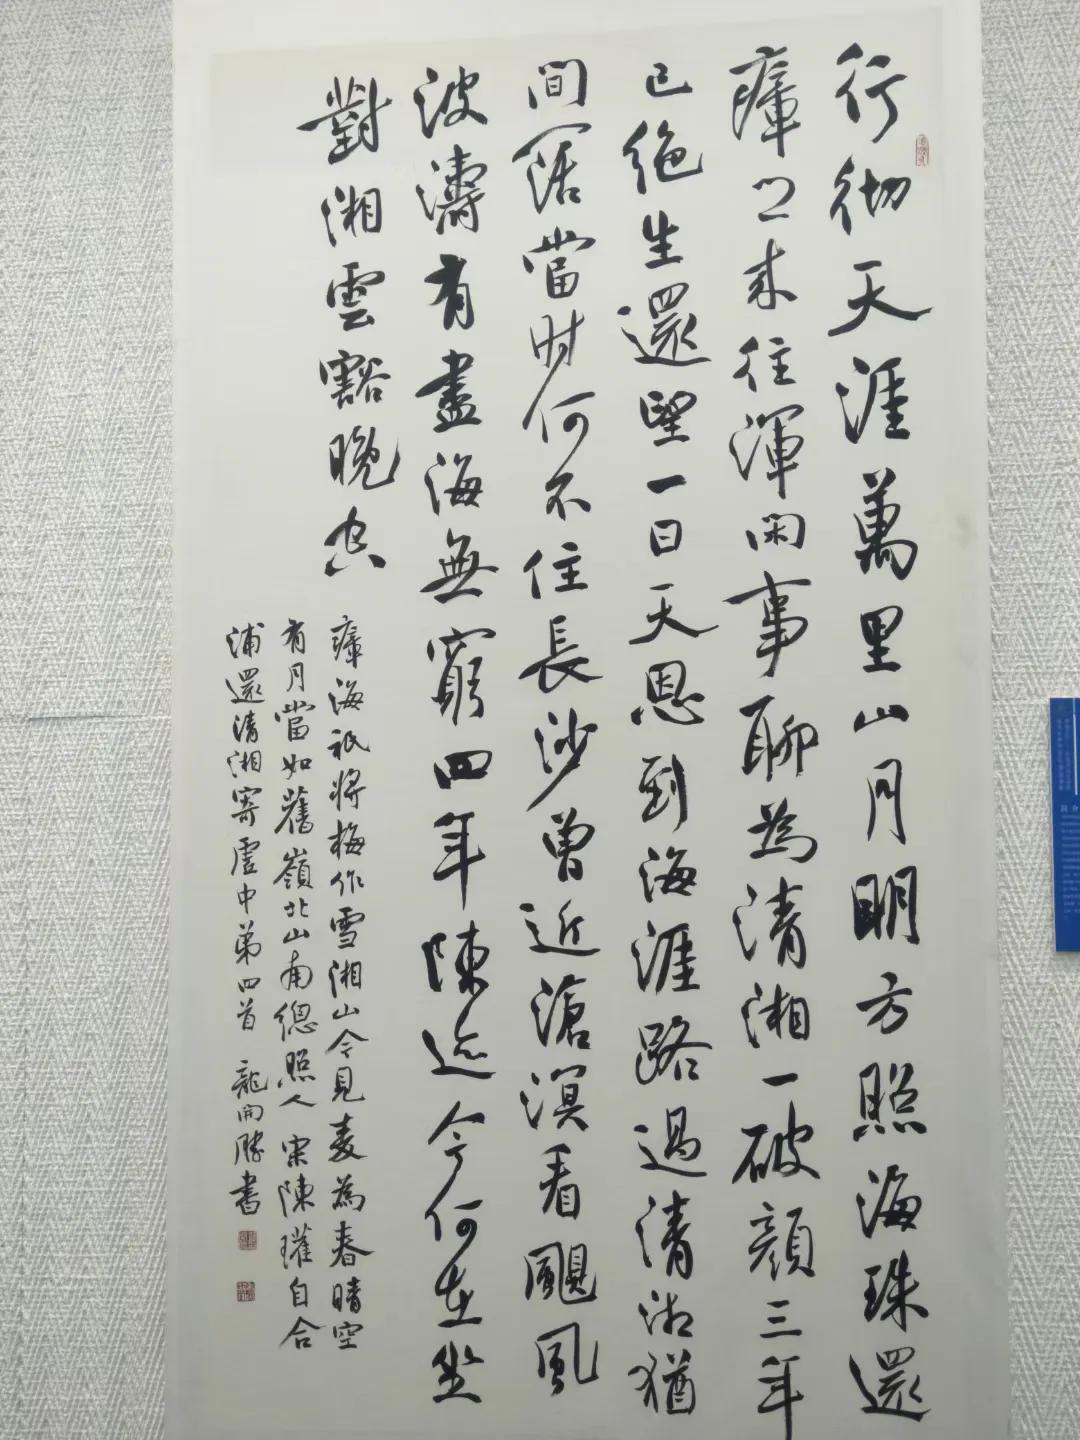 行彻天涯萬里山月明方照海珠還
瘴江来往渾閑事聊為清湘一破顔三年
已绝生還望一日天恩到海涯路過清湘猶
間闊當时何不住長沙曾近滄溟看颶風
波濤有盡海無窮四年陳迹今何在坐
對湘雲豁晚空
瘴海祇將梅作雪湘山今見麦為春晴空
有月當如舊嶺北山南總照人 宋陳瓘自合
浦還清湘寄虚中弟四首 龍開勝書